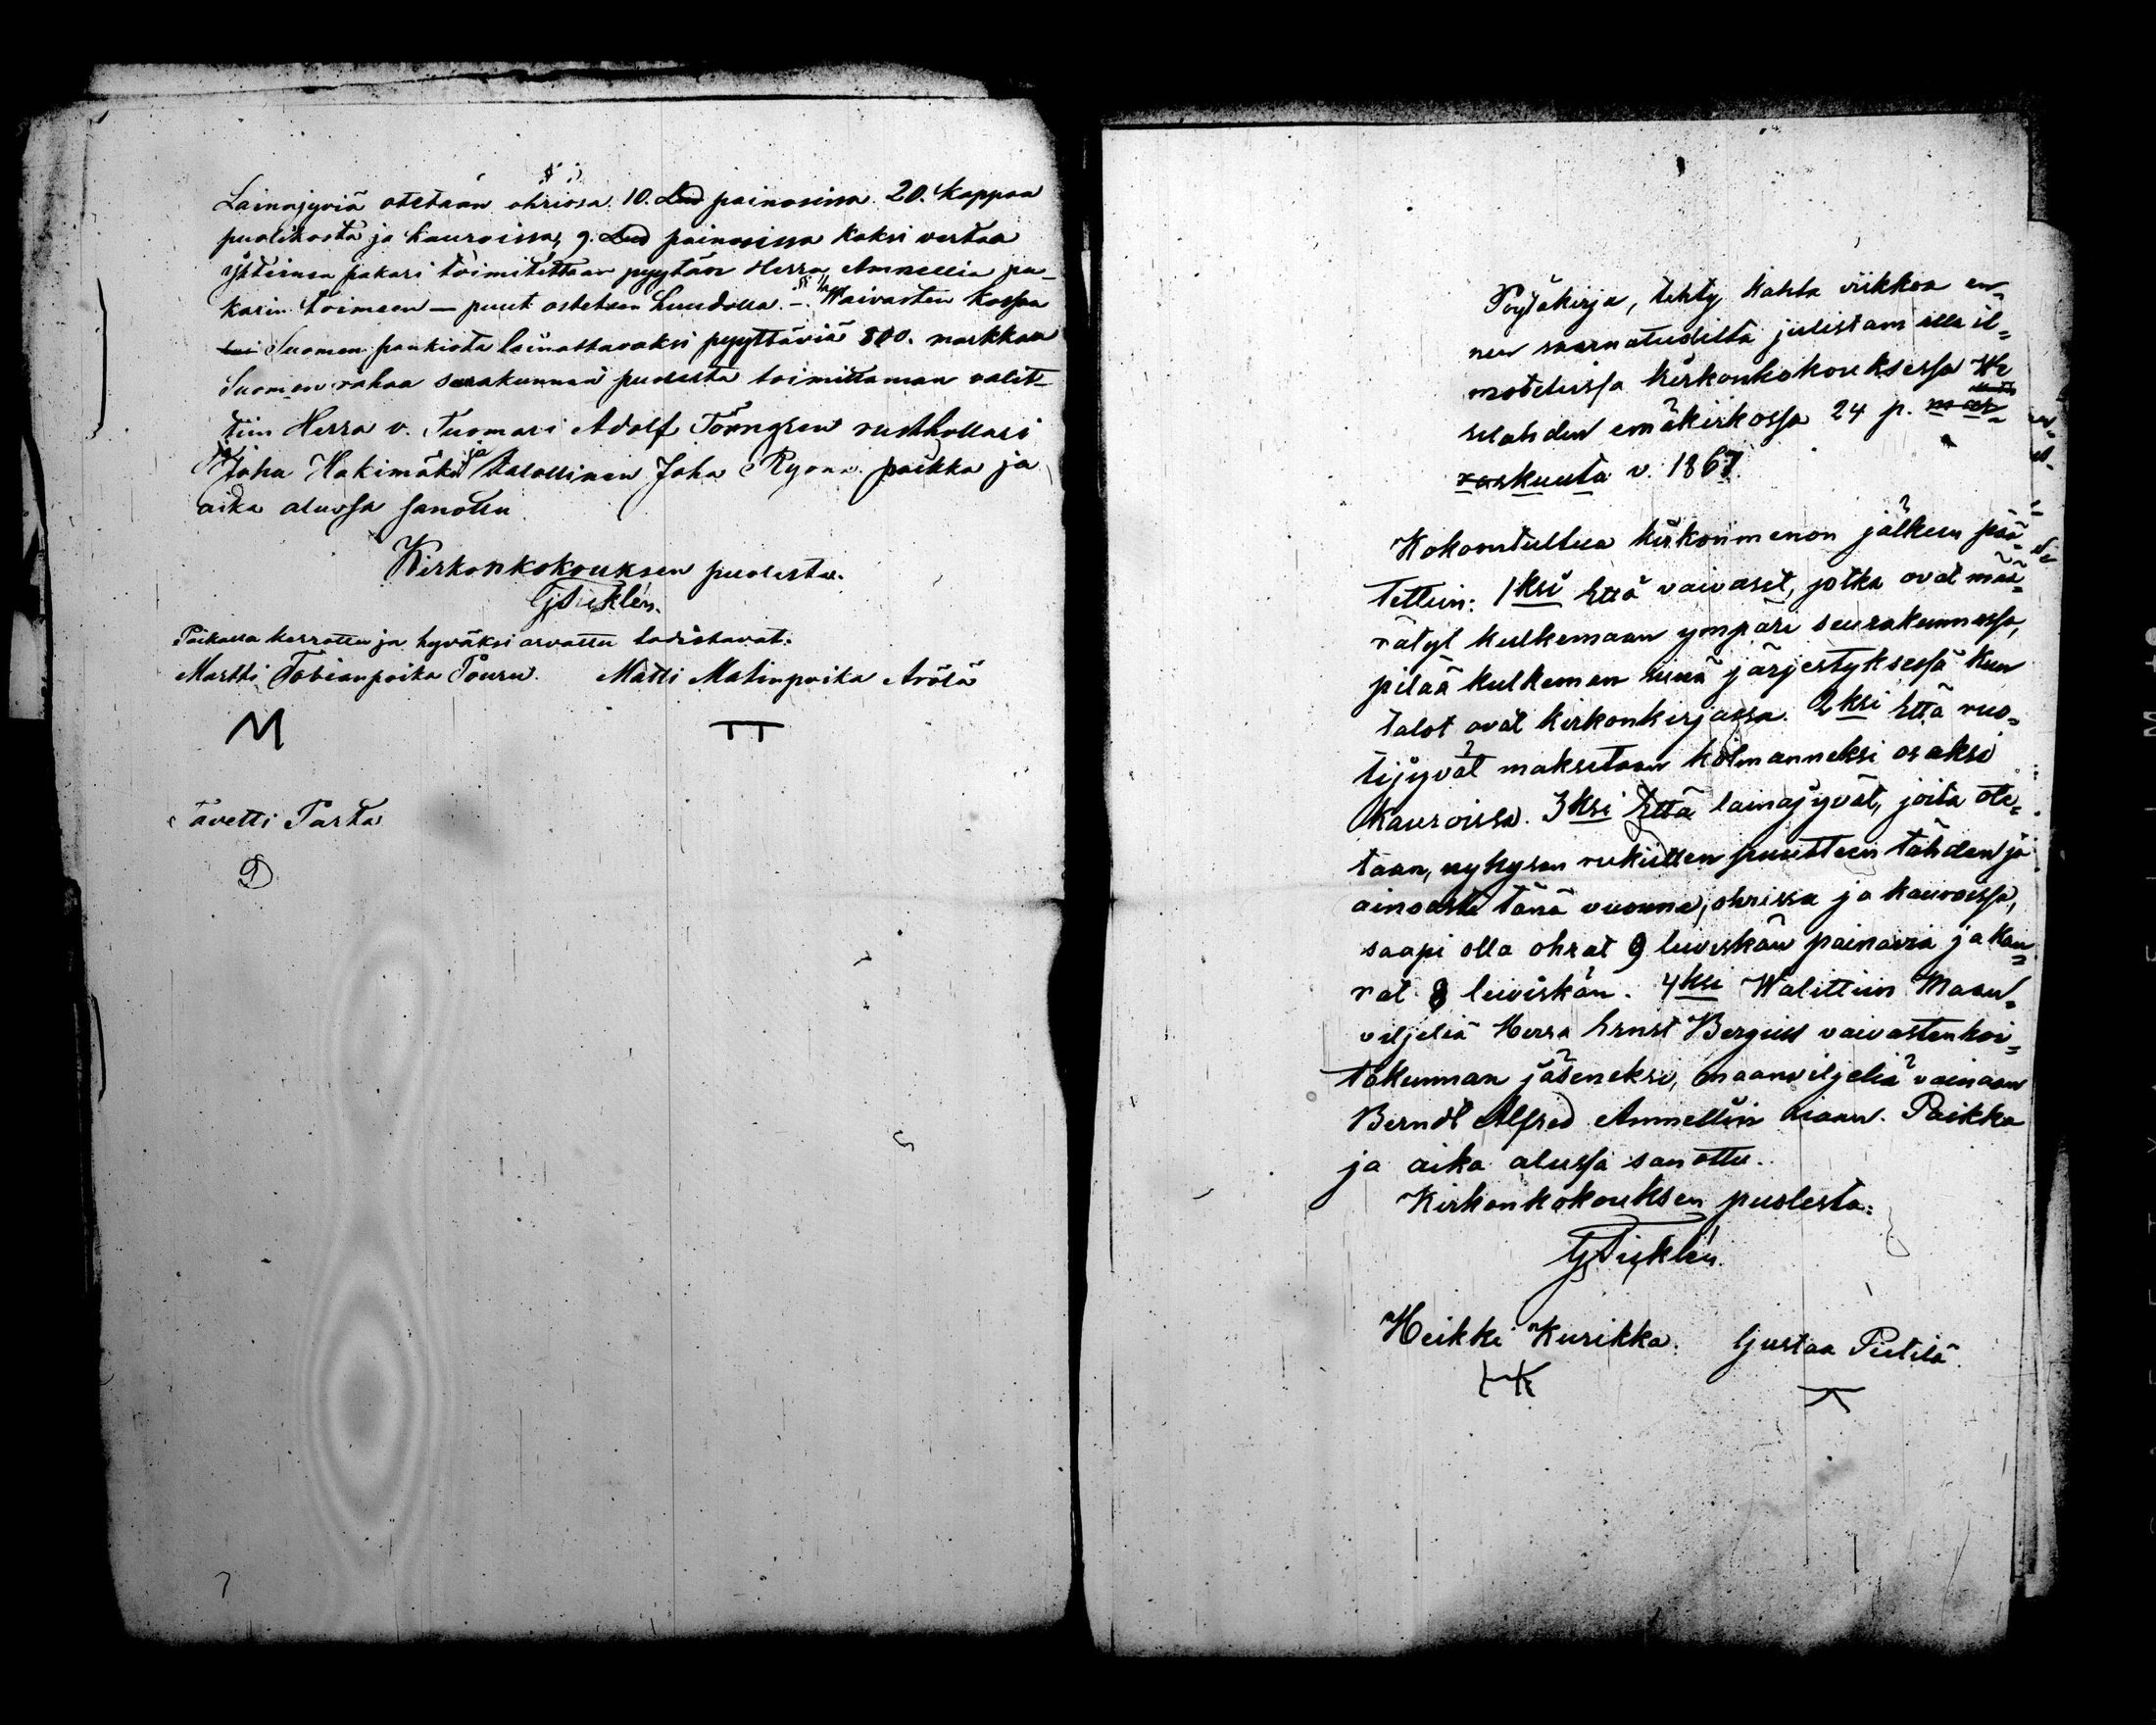 § 5
Lainajyviä otetaan ohrissa 10. Lud painosissa 20. Kappaa
puolikosta ja kauroissa, 9. Lud painosissa kaksi vertaa
ÿhteinen pakari toimitettaan pyytään Herra Amnellia pa-
karin toimeen — puut ostetaan huudolla. — Waivasten kassaa
Suomen pankista lainattavaksi pyyttäviä 800. markkaa
Suomen rahaa seurakunnan puolesta toimittaman valit-
tiin Herra v. Tuomari Adolf Törngren rusthollari
Juha Hakimäki ja talollinen Juha Ryona. paikka ja
aika alussa sanottu
Kirkonkokouksen puolesta.
G Dicklén.
Paikalla kerrottu ja hyväksi arvattu todistavat:
Martti Tobianpoika Pouru. Matti Matinpoika Arölä
M TT
Tavetti Parta
D
Pöytäkirja, tehty kahta viikkoa en-
nen saarnatuolilta julistam alla il-
motetussa kirkonkokouksessa We
silahden emäkirkossa 24 p. mar-
raskuuta v. 1867.
Kokoontultua kirkonmenon jälkeen pää-
tettiin: 1ksi Että vaivaset, jotka ovat mää-
rätyt kulkemaan ympäri seurakunnassa,
pitää kulkeman siinä järjestyksessä kun
talot ovat kirkonkirjassa. 2ksi Että ruo-
tijyvät maksetaan kolmanneksi osaksi
kauroissa. 3ksi Että lainajyvät, joita ote-
taan, nykysen rukiitten puutteen tähden ja
ainoasti tänä vuonna, ohrissa ja kauroissa,
saapi olla ohrat 9 leiviskän painavia ja kau-
rat 8 leiviskän. 4ksi Walittiin Maan-
viljeliä Herra Ernst Bergius vaivastenhoi-
tokunnan jäseneksi, maanviljeliä vainaan
Berndt Alfred Amnellin siaan. Paikka
ja aika alussa sanottu.
Kirkonkokouksen puolesta:
G Dicklén.
Heikki Kurikka. Gustaa Pietilä.
HK